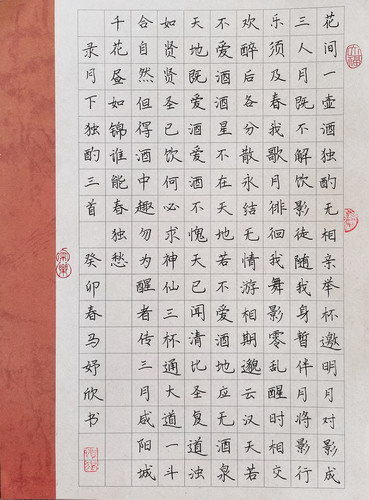 花间一壶酒独酌无相亲举杯邀明月对影成
三人月既不解饮影徒随我身暂伴月将影行
乐须及春我歌月徘徊我舞影零乱醒时相交
欢醉后各分散永结无情游相期邈云汉天若
不爱酒酒星不在天地若不爱酒地应无酒泉
天地既爱酒爱酒不愧天已闻清比圣复道浊
如贤贤圣已饮何必求神仙三杯通大道一斗
合自然但得酒中趣勿为醒者传三月咸阳城
千花昼如锦谁能春独愁
录月下独酌三首 癸卯春马妤欣书